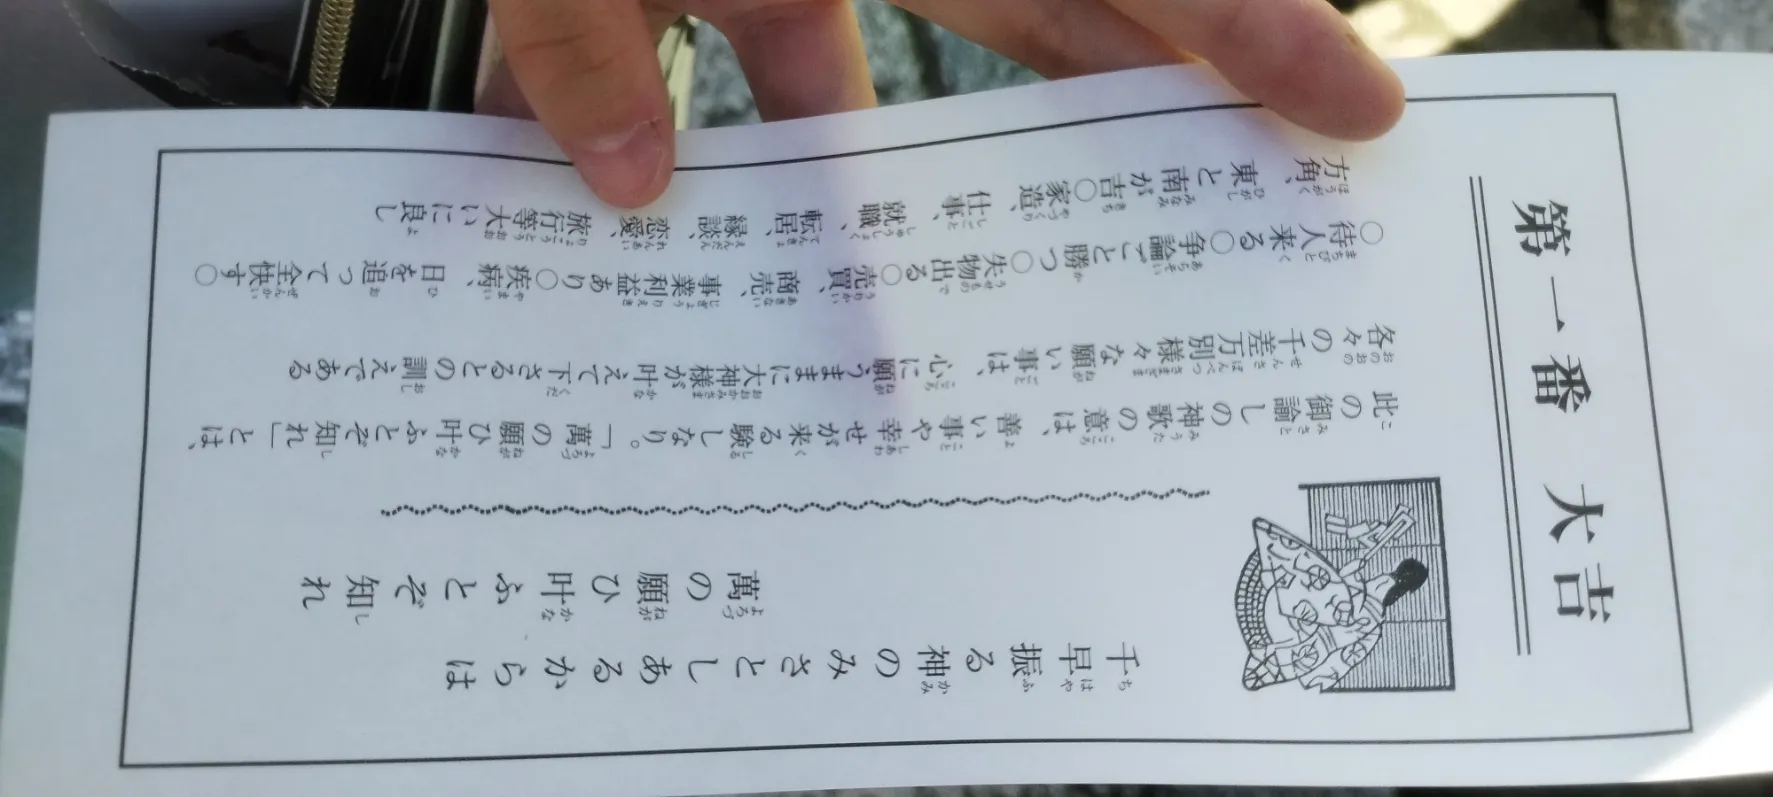 第一番 大吉
千早振る神のみさとしあるからは
萬の願ひ叶ふとぞ知れ
此の御諭しの神歌の意は、善い事や幸せが来る験しなり。「萬の願ひ叶ふとぞ知れ」とは、
各々の千差万別様々な願い事は、心に願うままに大神様が叶えて下さるとの訓えである
○待人来る○争論ごと勝つ○失物出る○売買、商売、事業利益あり○疾病、日を追って全快す○
方角、東と南が吉○家造、仕事、就職、転居、縁談、恋愛、旅行等大いに良し